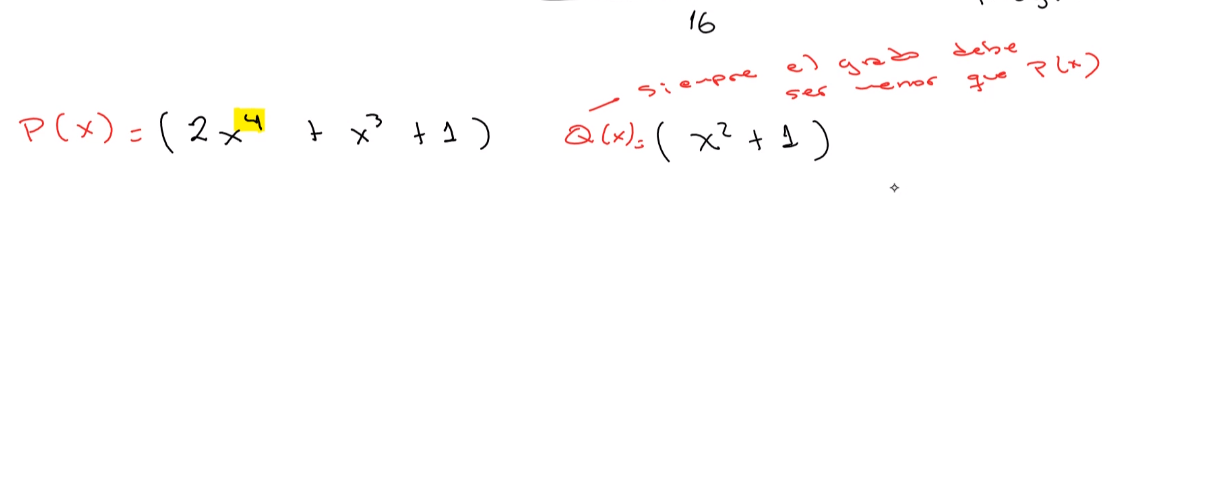 16
siempre el grado debe
ser menor que P(x)
P(x) = (2x⁴ + x³ + 1) Q(x) = (x² + 1)